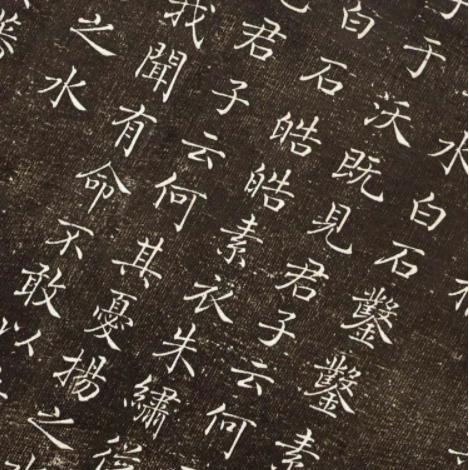 水白石鑿鑿素
子于沃既見君子云何
白石皓皓素衣朱繡從
見君子云何其憂揚之水
我聞有命不敢以
之水